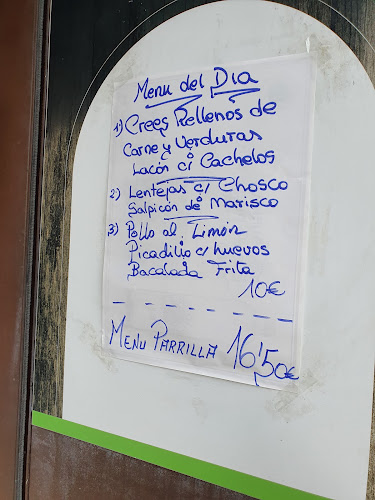 Menu del Dia
1) Crees Rellenos de
Carne y Verduras
Lacón c/ Cachelos
2) Lentejas c/ Chosco
Salpicón de Marisco
3) Pollo al Limón
Picadillo c/ huevos
Bacalada Frita
10€
MENU PARRILLA 16'50€